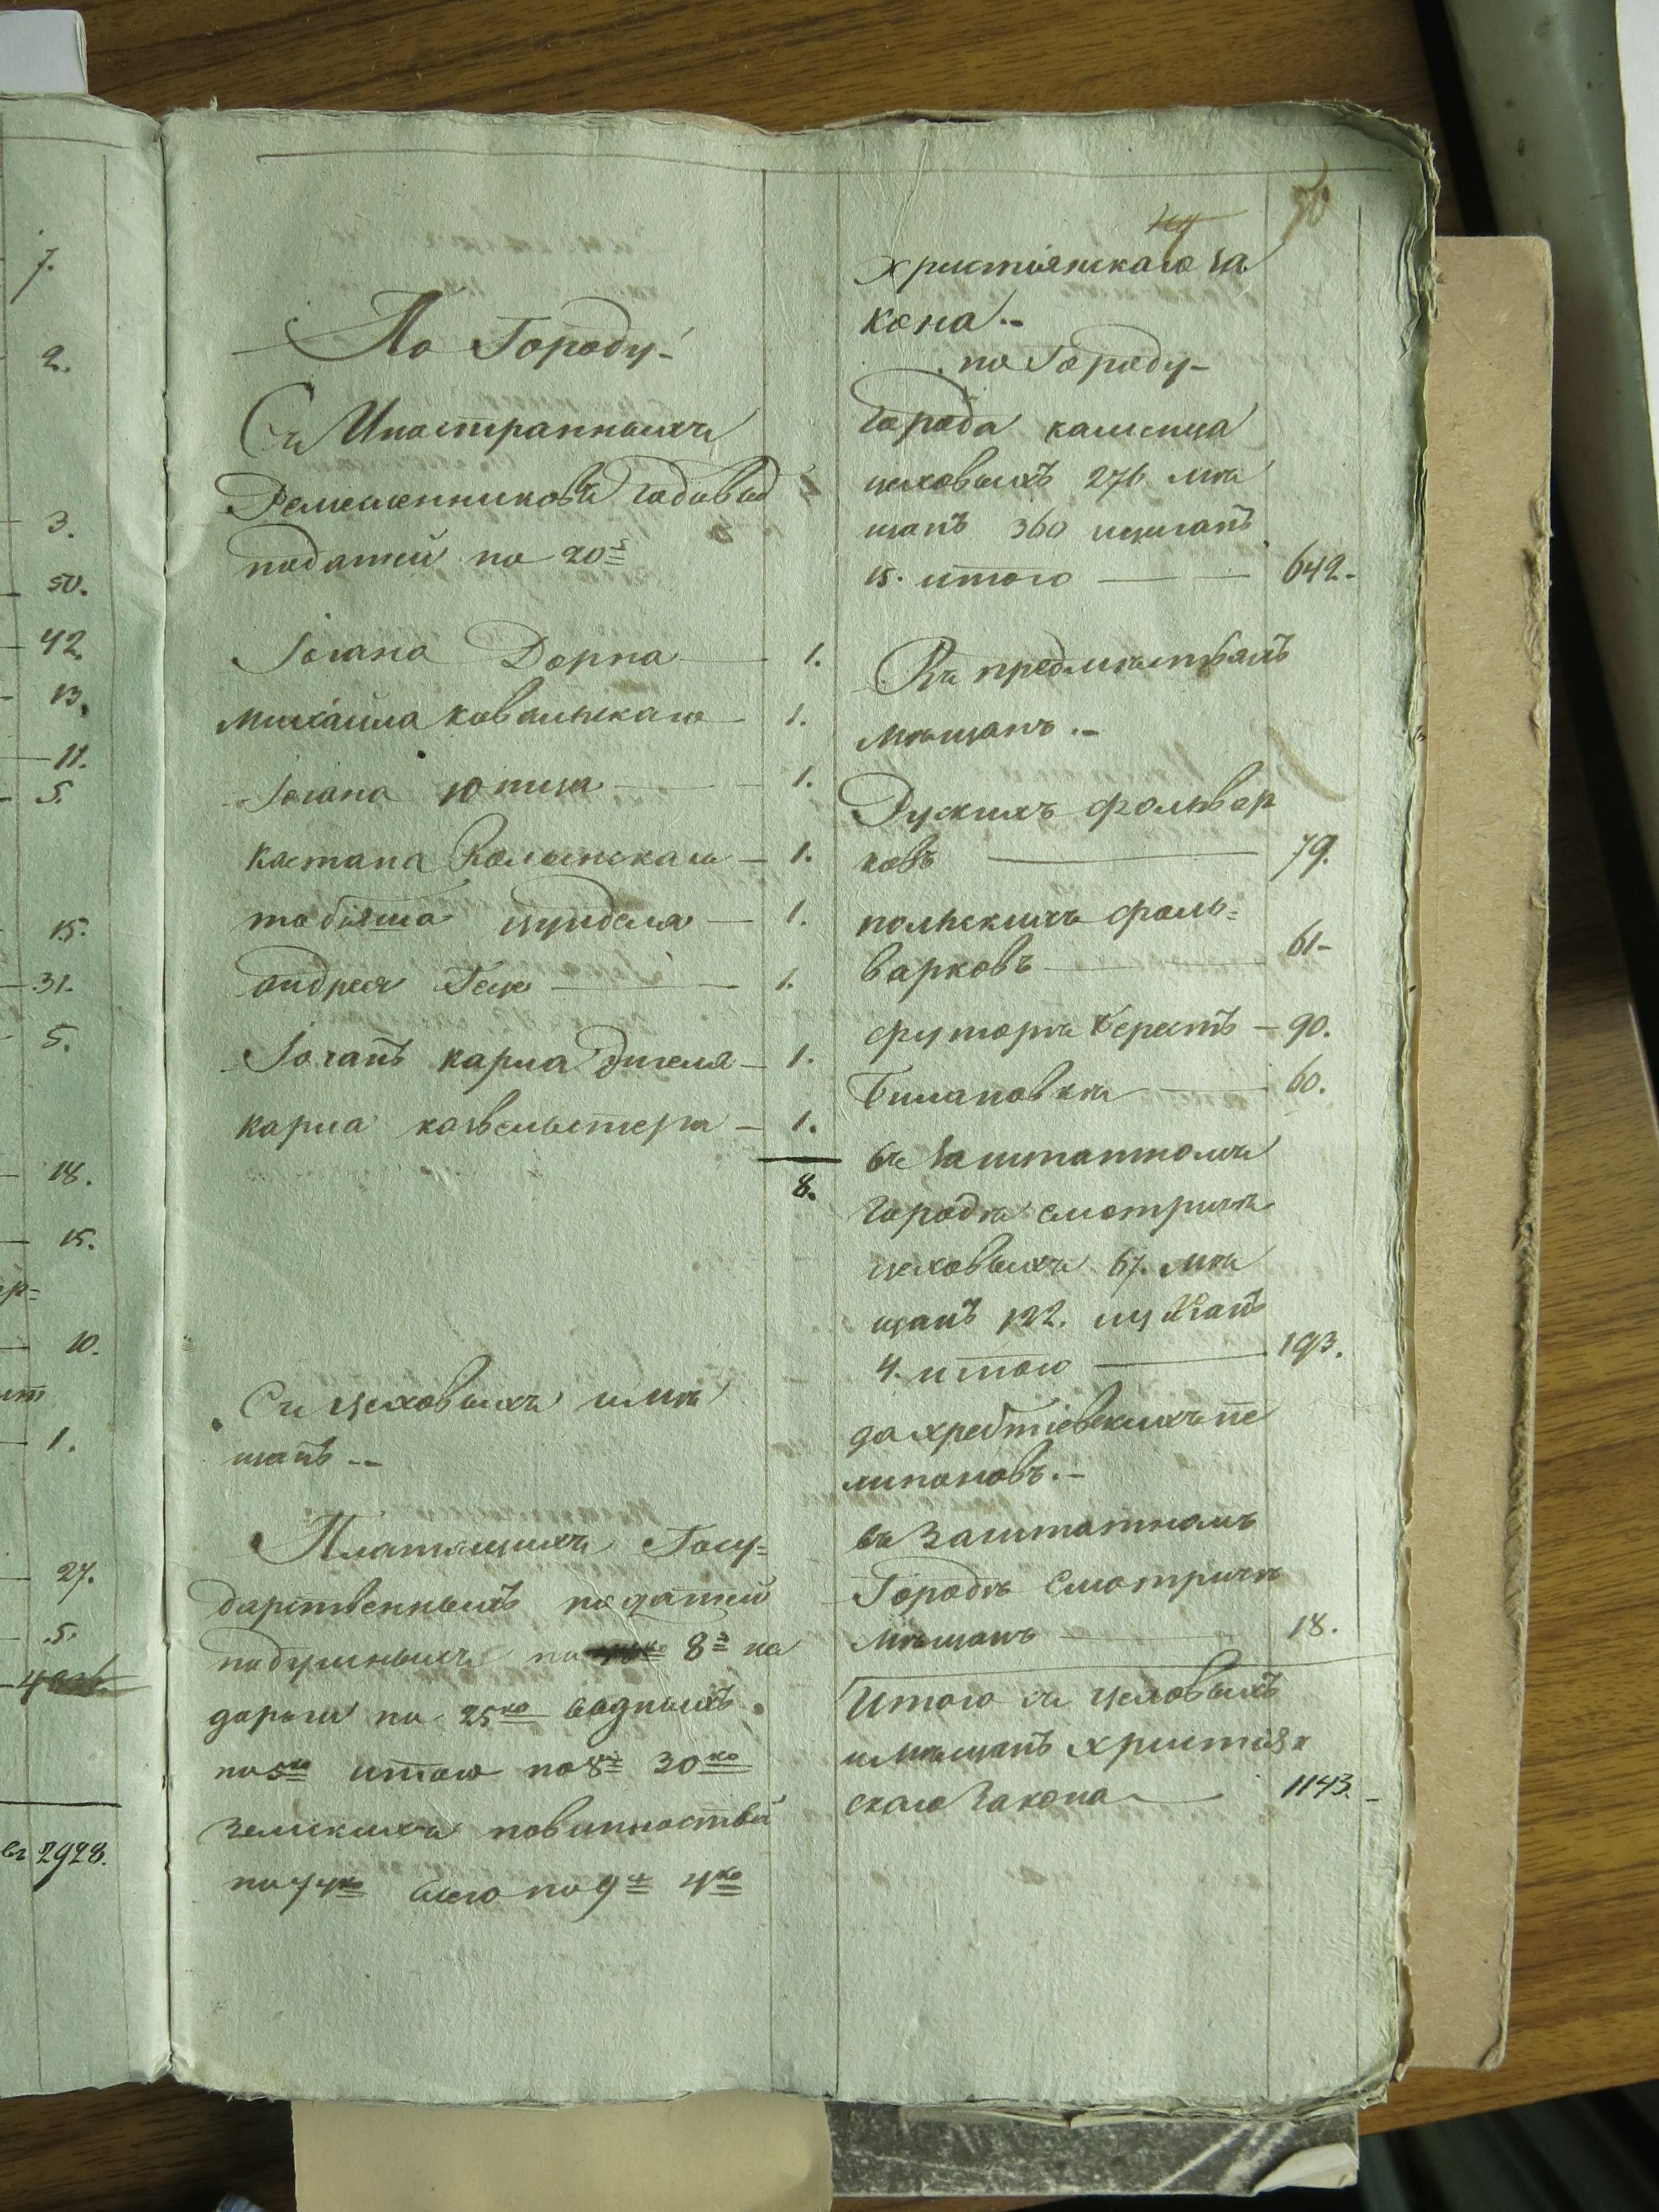 7.
2.
3.
50.
42.
13.
11.
5.
15.
31.
5.
18.
15.
10.
1.
27.
5.
2928.
По Городу
Съ Иностранныхъ
Ремесленниковъ годовой
податей по 20
Іогана Дорна 1.
Михаила Ковальскаго 1.
Іогана Юница 1.
Каетана Волынскаго 1.
тобіяша цинделя 1.
андрея 1.
Іоганъ карла Энгеля 1.
карла 1.
8.
Съ Цеховыхъ и мѣ
щанъ --
Платящихъ Госу=
дарственныхъ податей
подушныхъ по 8 на
дороги по 25 ко водныхъ
по 5 ко итого по 8 30 ко
Земскихъ повинностей
по 74 ко всего по 9 4 ко
50
христіянскаго за
кона.-
по Городу-
Города каменца
цеховыхъ 276 мѣ
щанъ 360 цыганъ
15. итого 642.
Въ предмѣстьяхъ
Мѣщанъ.-
Рускихъ фольвар
ковъ 79.
польскихъ фоль=
варковъ 61-
90.
60.
въ Заштатномъ
Городкѣ смотричѣ
цеховыхъ 67. мѣ
щанъ 122. цыганъ
4. итого 193.
да
липоновъ.-
въ Заштатномъ
Городкѣ Смотричѣ
Мѣщанъ 18.
Итого съ Цеховыхъ
и мѣщанъ христіян
скаго Закона 1143.-